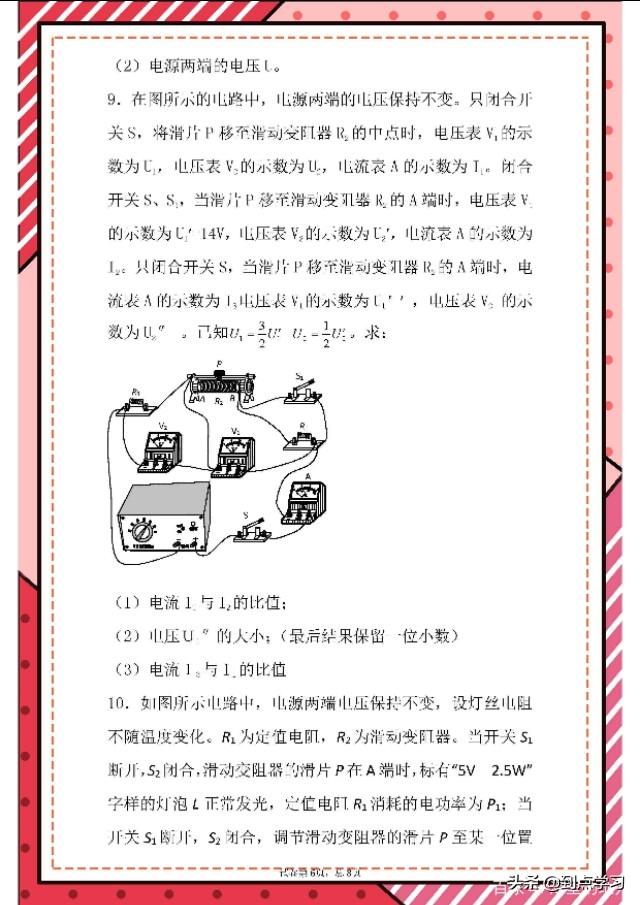 （2）电源两端的电压U。
9．在图所示的电路中，电源两端的电压保持不变。只闭合开
关S，将滑片P移至滑动变阻器R₂的中点时，电压表V₁的示
数为U₁，电压表V₂的示数为U₂，电流表A的示数为I₁。闭合
开关S、S₁，当滑片P移至滑动变阻器R₂的A端时，电压表V₁
的示数为U₁′ 14V，电压表V₂的示数为U₂′，电流表A的示数为
I₂。只闭合开关S，当滑片P移至滑动变阻器R₂的A端时，电
流表A的示数为I₃电压表V₁的示数为U₁′′，电压表V₂ 的示
数为U₂″ 。已知U₁=3/2U′ U₂=1/2U′₂。求：
P
S₁
R₁
A R₂ B
V₂
V₁
R
A
S
（1）电流I 与I₂的比值；
（2）电压U ″的大小；（最后结果保留一位小数）
（3）电流I₃与I 的比值
10．如图所示电路中，电源两端电压保持不变，设灯丝电阻
不随温度变化。R₁为定值电阻，R₂为滑动变阻器。当开关S₁
断开，S₂闭合，滑动变阻器的滑片P在A端时，标有“5V 2.5W”
字样的灯泡L正常发光，定值电阻R₁消耗的电功率为P₁；当
开关S₁断开，S₂闭合，调节滑动变阻器的滑片P至某一位置
试卷第6页，总8页
头条 @到点学习